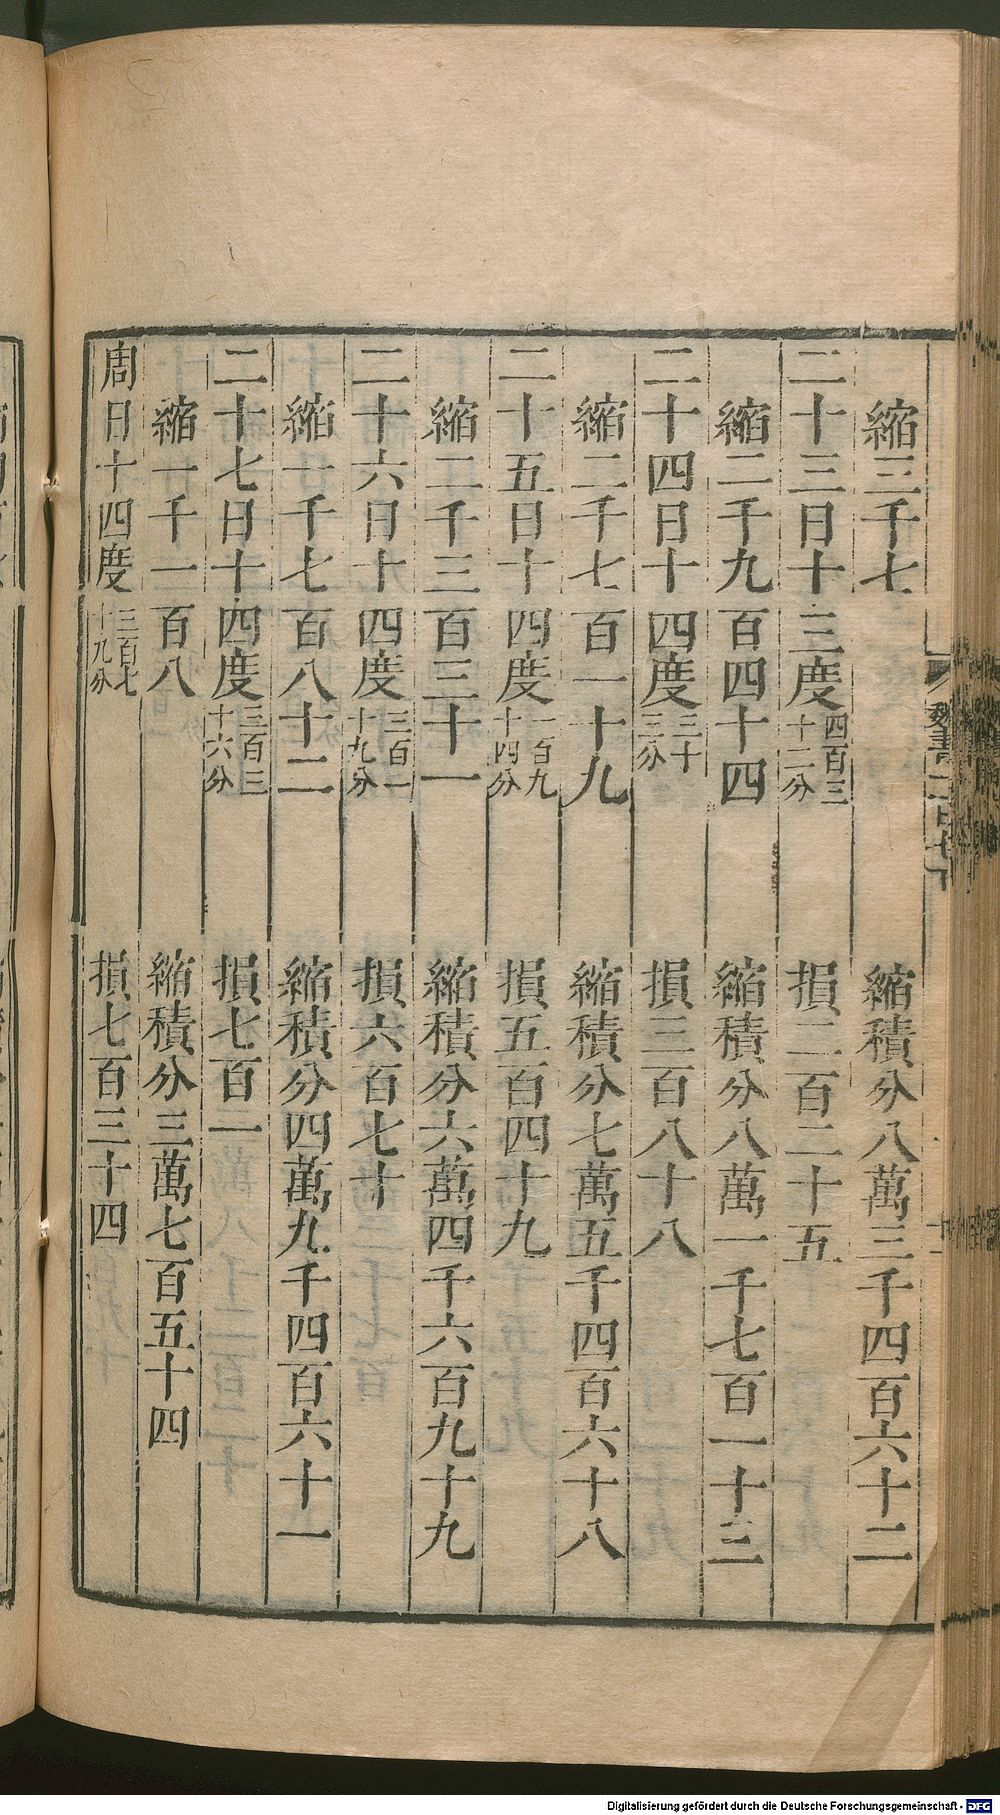 縮三千七　縮積分八萬三千四百六十二
二十三日十三度四百三十二分　損二百二十五
縮二千九百四十四　縮積分八萬一千七百一十三
二十四日十四度三十三分　損三百八十八
縮二千七百一十九　縮積分七萬五千四百六十八
二十五日十四度一百九十四分　損五百四十九
縮二千三百三十一　縮積分六萬四千六百九十九
二十六日十四度三百一十九分　損六百七十
縮一千七百八十二　縮積分四萬九千四百六十一
二十七日十四度三百三十六分　損七百一
縮一千一百八　縮積分三萬七百五十四
周日十四度三百七十九分　損七百三十四
Digitalisierung gefördert durch die Deutsche Forschungsgemeinschaft - DFG